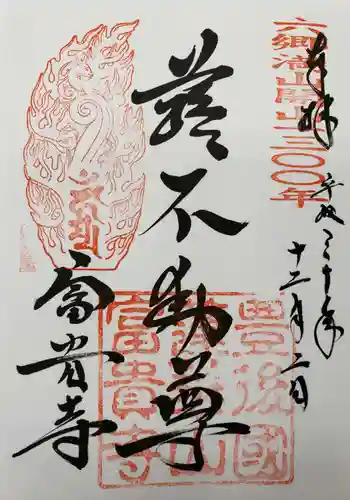 六郷満山開山一三〇〇年
奉拝
平成三十年
十二月二日
蓮不動尊
富貴寺
豊後國
蓮華山
富貴寺